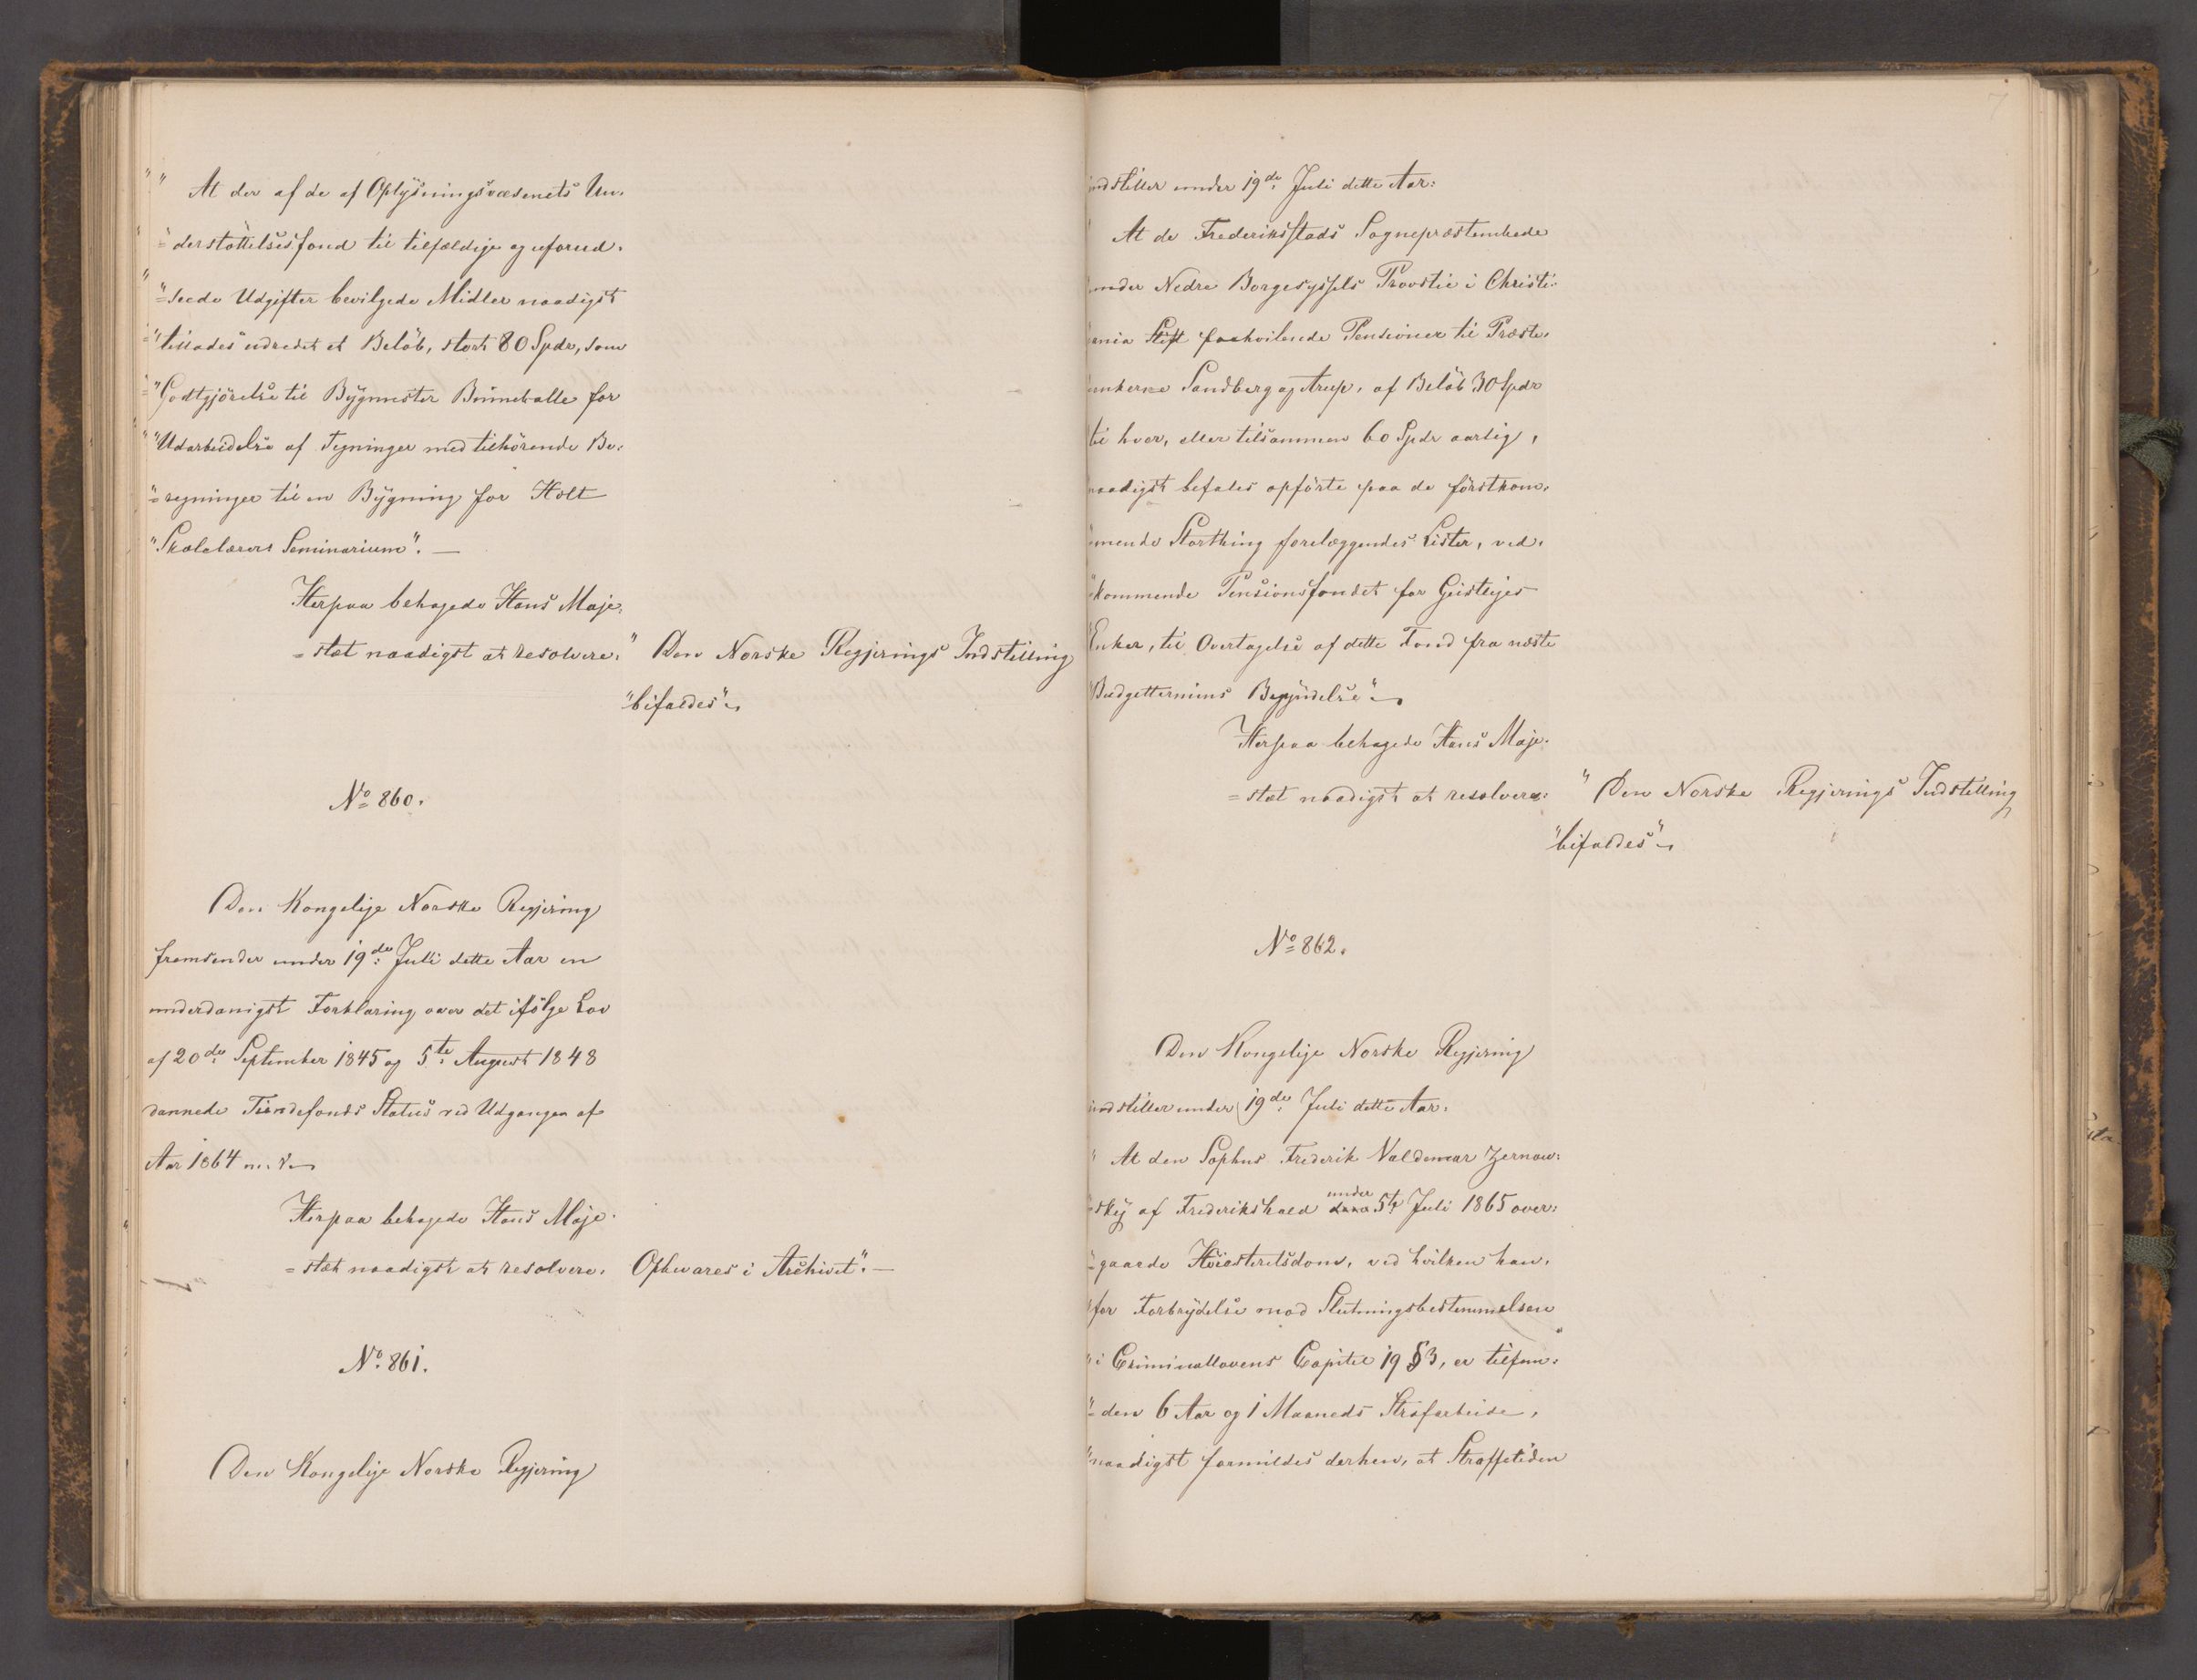 " At der af de af Oplysningsvæsenets Un-
"=derstøttelsesfond til tilfældige og uforud-
"=seede Udgifter bevilgede Midler naadigst
"tillades udredet et Beløb, stort 80 Spdr, som
"Godtgjörelse til Bygmester Brinneballe for
"Udarbeidelse af Tegninger med tilhörende Be-
"=regninger til en Bygning for Holt
"Skolelærers Seminarium". —
Herpaa behagede Hans Maje-
=stæt naadigst at resolvere: " Den Norske Regjerings Indstilling
"bifaldes".
No 860.
Den Kongelige Norske Regjering
fremsender under 19de Juli dette Aar en
underdanigst Forklaring over det ifölge Lov
af 20de September 1845 og 5te August 1848
dannede Tiendefonds Status ved Udgangen af
Aar 1864 m. V.
Herpaa behagede Hans Maje-
=stæt naadigst at resolvere. Opbevares i Archivet". —
No 861.
Den Kongelige Norske Regjering
7
indstiller under 19de Juli dette Aar:
" At de Frederiksstads Sognepræstembede
under Nedre Borgesyssels Provstie i Christi-
"ania Stift paahvilende Pensioner til Præste-
"enkerne Sandberg og Arup, af Beløb 30 Spdr
til hver, eller tilsammen 60 Spdr aarlig,
naadigst befales opförte paa de förstkom-
"mende Storthing forelæggendes Lister, ved-
"kommende Pensionsfondet for Geistliges
"Enker, til Overtagelse af dette Fond fra næste
"Budgettermins Begyndelse".
Herpaa behagede Hans Maje-
=stæt naadigst at resolvere: " Den Norske Regjerings Indstilling
"bifaldes".
No 862.
Den Kongelige Norske Regjering
indstiller under 19de Juli dette Aar.
" At den Sophus Frederik Valdemar Zernow-
"=sky af Frederikshald under 5te Juli 1865 over-
"=gaaede Höiesteretsdom, ved hvilken han,
"for Forbrydelse mod Slutningsbestemmelsen
"i Criminallovens Capitel 19 § 3, er tilfun-
"=den 6 Aar og 1 Maaneds Strafarbeide,
"naadigst formildes derhen, at Straffetiden